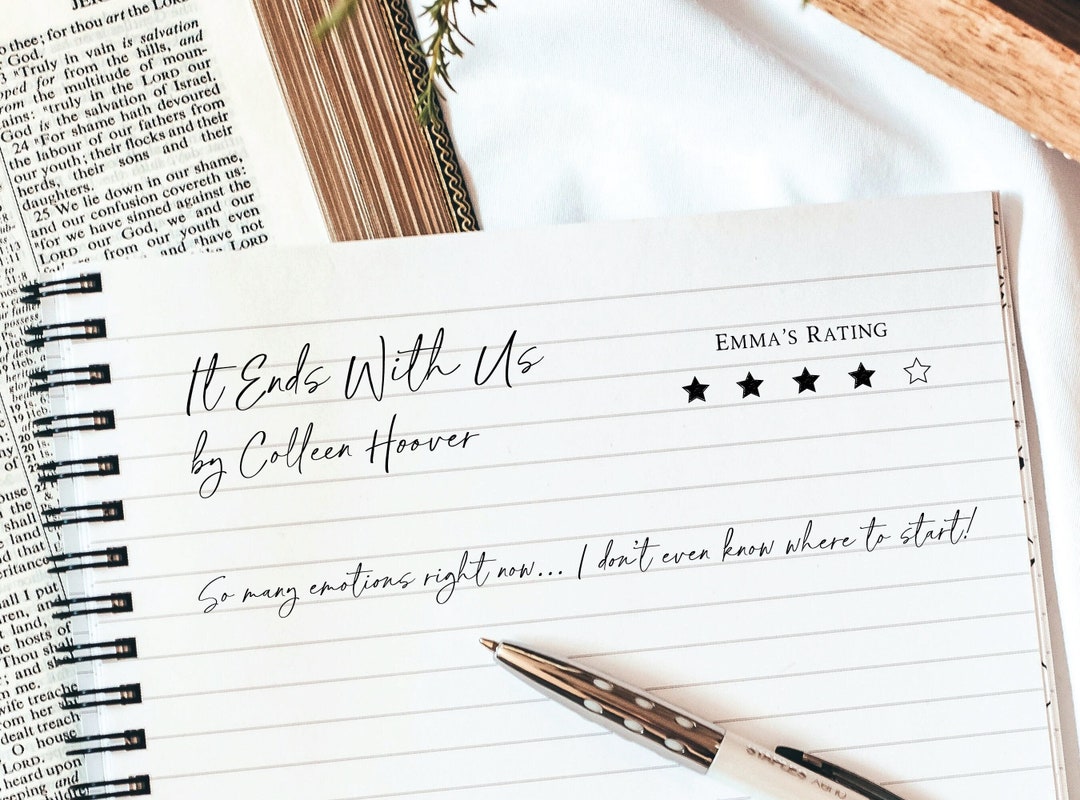 o thee; for thou art the LORD
God.
3 "Truly in vain is salvation
oped for from the hills, and
from the multitude of moun-
tains: "truly in the LORD our
God is the salvation of Israel.
24 "For shame hath devoured
the labour of our fathers from
our youth; their flocks and their
herds, their sons and their
daughters.
25 We lie down in our shame,
and our confusion covereth us:
"for we have sinned against the
LORD our God, we and our
from our youth even
and "have not
LORD
It Ends With Us
by Colleen Hoover
EMMA'S RATING
So many emotions right now... I don't even know where to start!
STAPLES
possess
ouse
the
shall
land
d that
eritance
hall I put
ren, and
land,
e hosts of
Thou shall
; and shall
m me.
wife treache
from her
dealt treach
O house
LORD.
heard upon
eping and